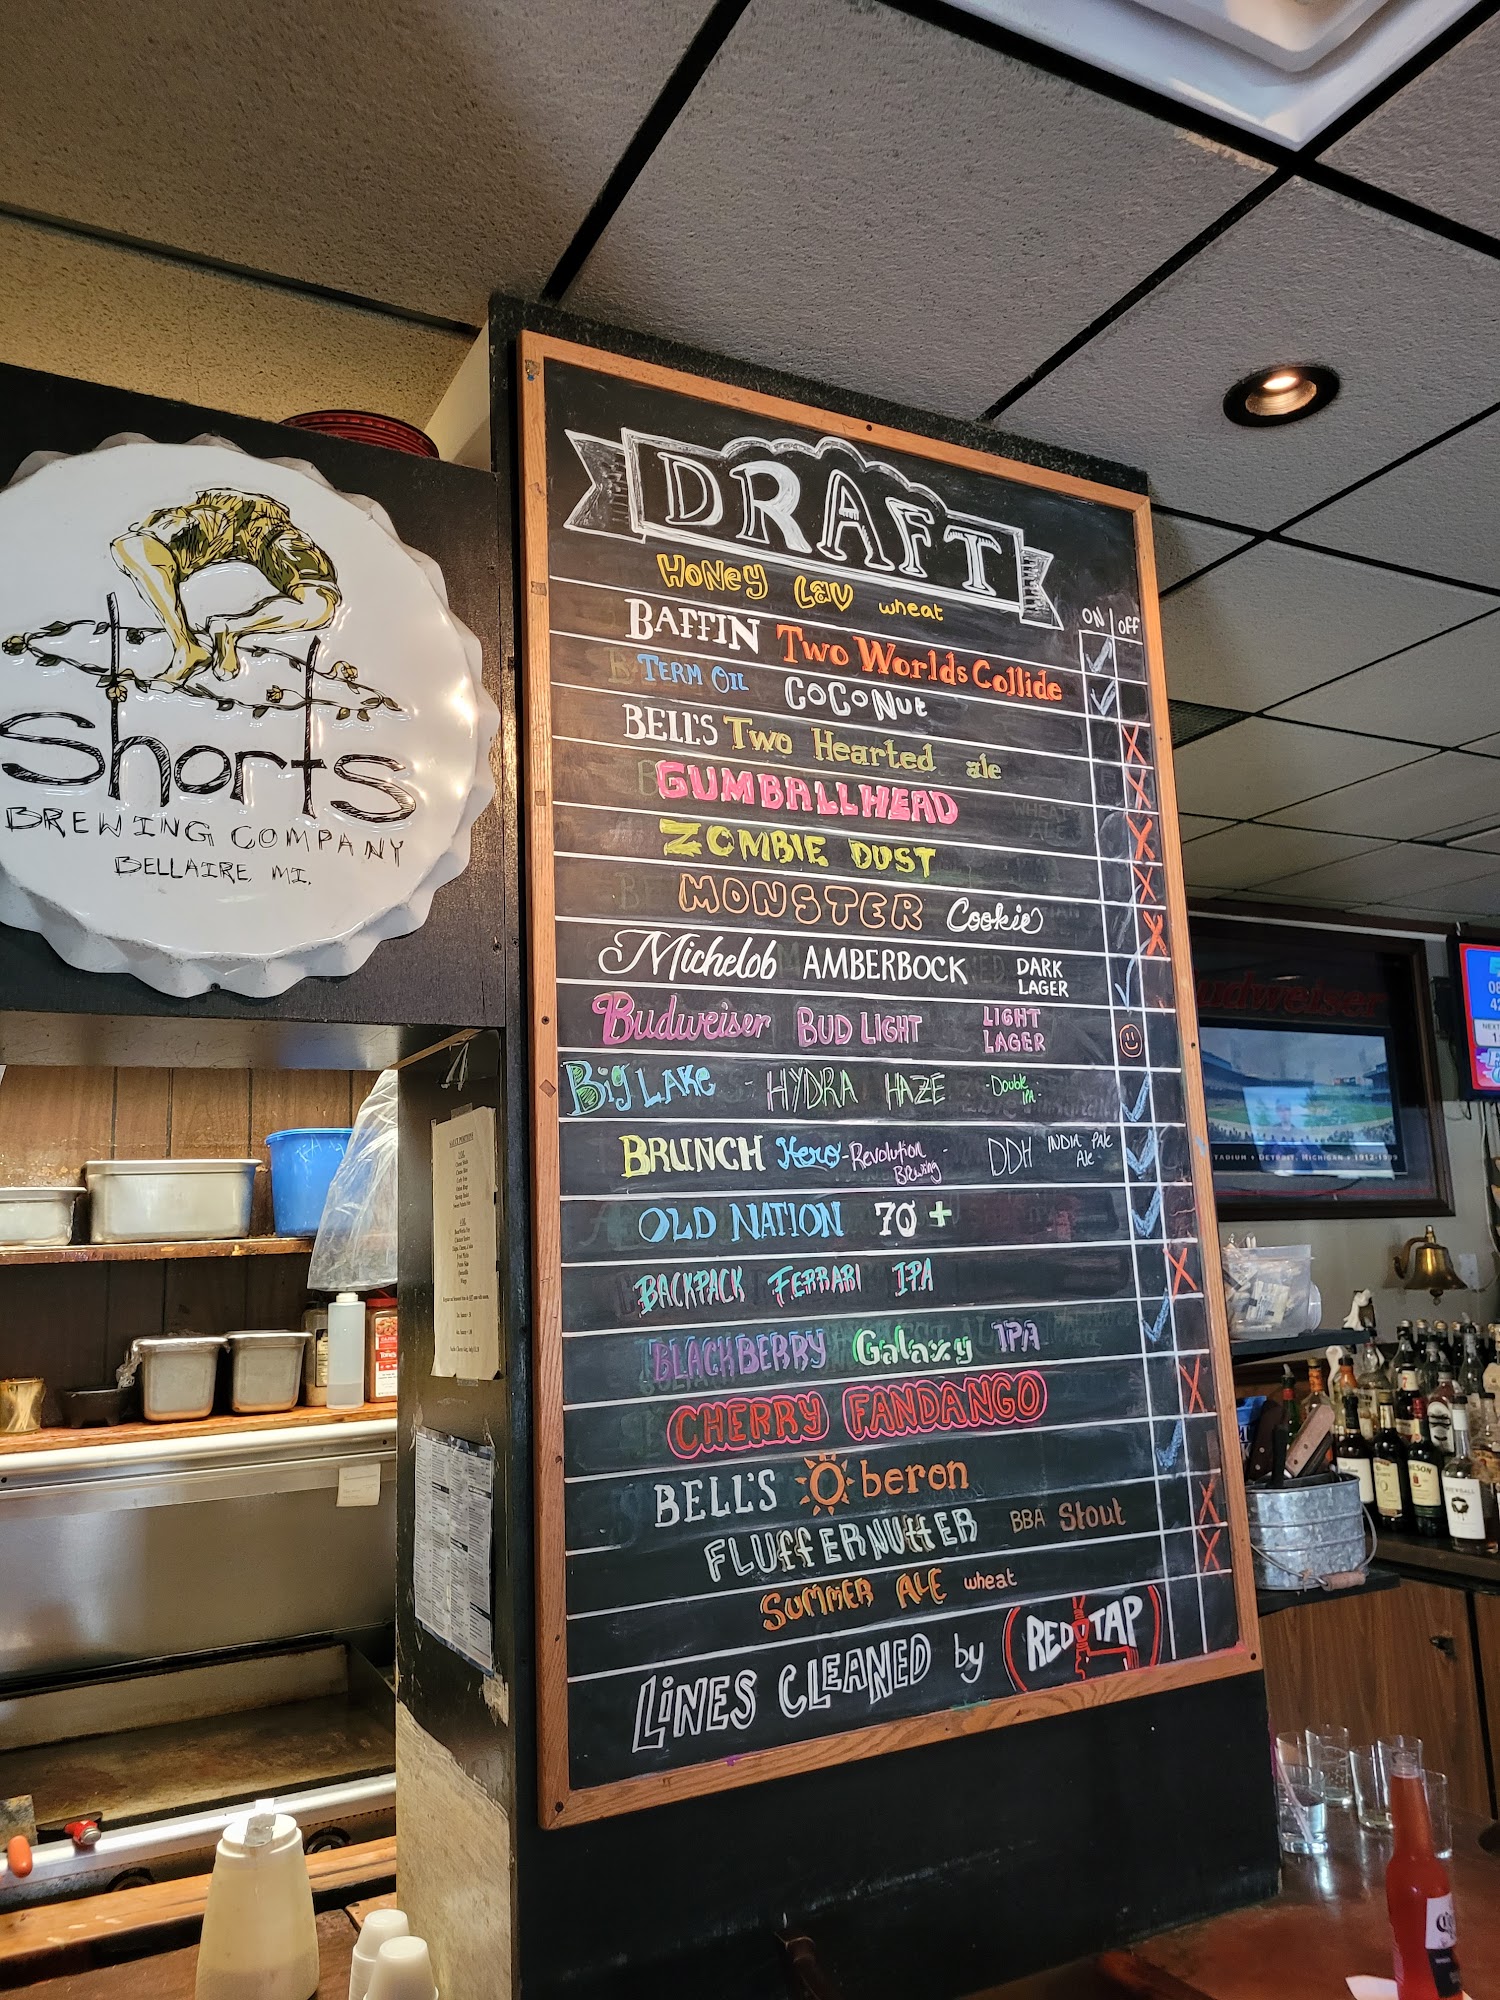 shorts
BREWING COMPANY
BELLAIRE, MI.
DRAFT
HONEY LAV wheat
ON | OFF
BAFFIN Two Worlds Collide
TERM OIL COCONUT
BELL'S Two Hearted ale
GUMBALLHEAD
ZOMBIE DUST
MONSTER Cookie
Michelob AMBERBOCK DARK LAGER
Budweiser BUD LIGHT LIGHT LAGER
Big LAKE - HYDRA HAZE -Double IPA-
BRUNCH Hero -Revolution Brewing- DDH INDIA Pale Ale
OLD NATION 70+
BACKPACK FERRARI IPA
BLACKBERRY Galaxy IPA
CHERRY FANDANGO
BELL'S Oberon
FLUFFERNUTTER BBA Stout
SUMMER ALE wheat
LINES CLEANED by RED TAP
Budweiser
TADIUM • DETROIT, MICHIGAN • 1912-1999